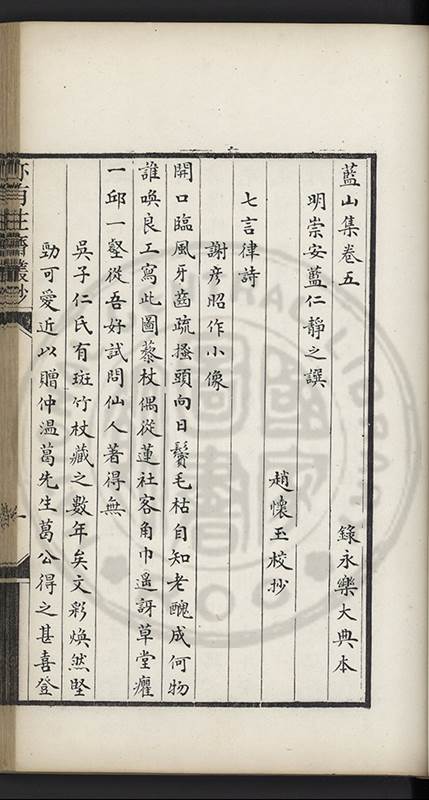 藍山集卷五　錄永樂大典本
明崇安藍仁靜之譔
趙懷玉校抄
七言律詩
謝彥昭作小像
開口臨風牙齒疏搔頭向日鬢毛枯自知老醜成何物
誰喚良工寫此圖藜杖偶從蓮社客角巾遥訝草堂癯
一邱一壑從吾好試問仙人著得無
吳子仁氏有斑竹杖藏之數年矣文彩煥然堅
勁可愛近以贈仲溫葛先生葛公得之甚喜登
亦有生齋叢抄